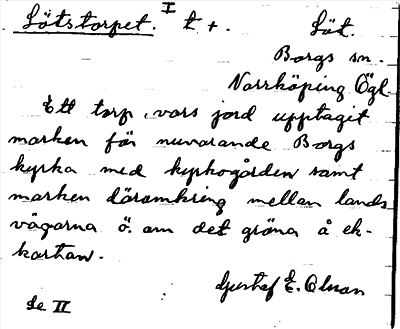 I
Lötstorpet. t +. Löt.
Borgs sn.
Norrköping Ögl.
Ett torp, vars jord upptagit
marken för nuvarande Borgs
kyrka med kyrkogården samt
marken däromkring mellan lands
vägarna ö. om det gröna å ek-
kartan.
Gustaf E. Olsson
Se II